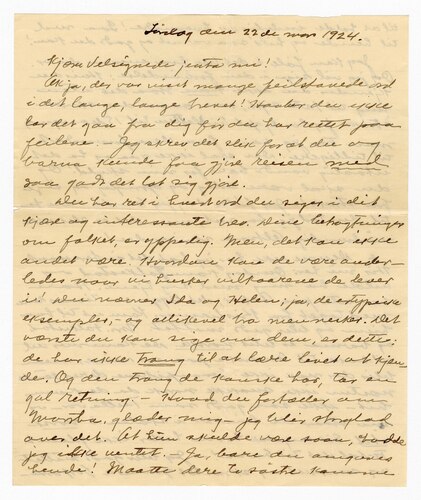 Lørdag den 22de mars 1924.
Kjære velsignede jenta mi!
Ak ja, der var visst mange feilstavede ord
i det lange, lange brevet! Haaber du ikke
lar det gaa fra dig før du har rettet paa
feilene. – Jeg skrev det slik for at du og
varna kunde faa gjøre reisen med
saa godt det lot sig gjøre.
Du har ret i hvert ord du siger i dit
kjære og interessante brev. Dine betragtninger
om folket, er oppedig. Men, det kan ikke
andet være. Hvordan kan de være ander-
ledes naar vi husker vilkaarene de lever
i! Du nævner Ida og Helen; ja, de er typiske
eksempler, – og allikevel bra mennesker. Det
værste du kan sige om dem, er dette:
de har ikke trang til at lære livet at kjen-
de. Og den trang de kanske har, tar en
gal retning. – Hvad du fortæller om
glæder mig – jeg blir
over det. At hun skulde være saan, hadde
jeg ikke ventet. – Ja, bare du omgaaes
hende! Maatte dere to søste komme